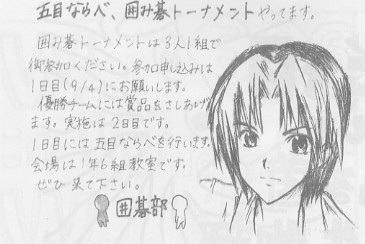 五目ならべ、囲み碁トーナメントやってます。
囲み碁トーナメントは3人1組で
御参加ください。参加申し込みは
1日目(9/4)にお願いします。
優勝チームには賞品をさしあげ
ます。実施は2日目です。
1日目には五目ならべを行います。
会場は1年6組教室です。
ぜひ来て下さい。
囲碁部